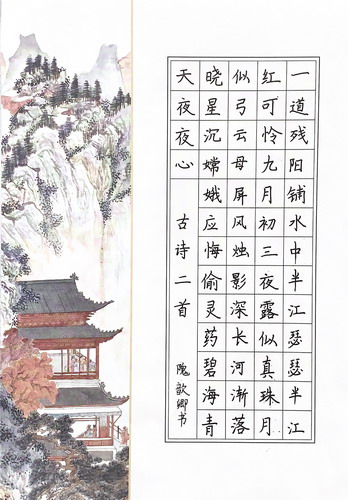 一道残阳铺水中半江瑟瑟半江
红可怜九月初三夜露似真珠月
似弓云母屏风烛影深长河渐落
晓星沉嫦娥应悔偷灵药碧海青
天夜夜心
古诗二首
隗歆卿书